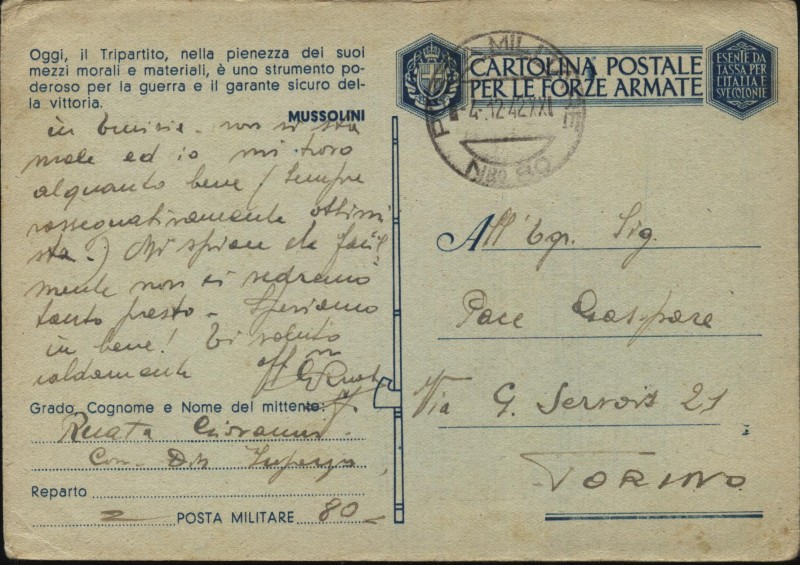 Oggi, il Tripartito, nella pienezza dei suoi
mezzi morali e materiali, è uno strumento po-
deroso per la guerra e il garante sicuro del-
la vittoria.
MUSSOLINI
in Tunisia. non si sta
male ed io mi trovo
alquanto bene (sempre
rassegnativamente ottimi
sta.) Mi spiace che facil-
mente non ci vedremo
tanto presto - Speriamo
in bene! Ti saluto
caldamente
Grado, Cognome e Nome del mittente:
Renata Giovanni
Com. Div. Superga
Reparto
POSTA MILITARE 80
CARTOLINA POSTALE
PER LE FORZE ARMATE
ESENTE DA
TASSA PER
L'ITALIA E
SUE COLONIE
POSTA MILITARE
4.12.42 XXI
N° 80
All' Egr. Sig.
Pace Gaspare
Via G. Servois 21
TORINO